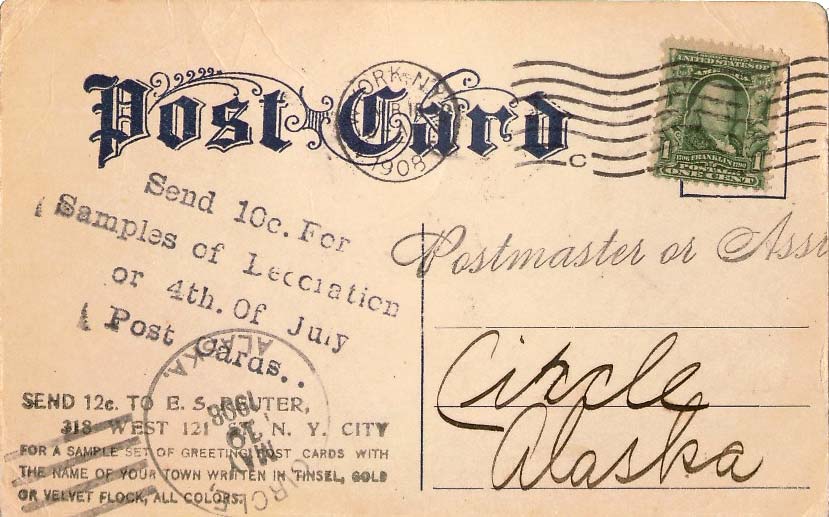 Post Card
YORK, N.Y.
1908
C
UNITED STATES OF
AMERICA
1 FRANKLIN 1
POSTAGE
ONE CENT
Send 10c. For
Samples of Lecoration
or 4th. Of July
Post Cards..
Postmaster or Assi
Circle
Alaska
SEND 12c. TO E. S. REUTER,
318 WEST 121 ST. N. Y. CITY
FOR A SAMPLE SET OF GREETING POST CARDS WITH
THE NAME OF YOUR TOWN WRITTEN IN TINSEL, GOLD
OR VELVET FLOCK, ALL COLORS.
CIRCLE,
ALASKA.
MAY
10
1908